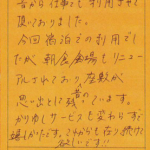 昔から仕事でも利用させて
頂いておりました。
今回宿泊での利用でし
たが、朝食会場もリニュー
アルされており、座敷が
昔の
思い出とに残っています。
かわりしサービスも変わらず、
嬉しかったです。これからも在り続けて
欲しいです!!